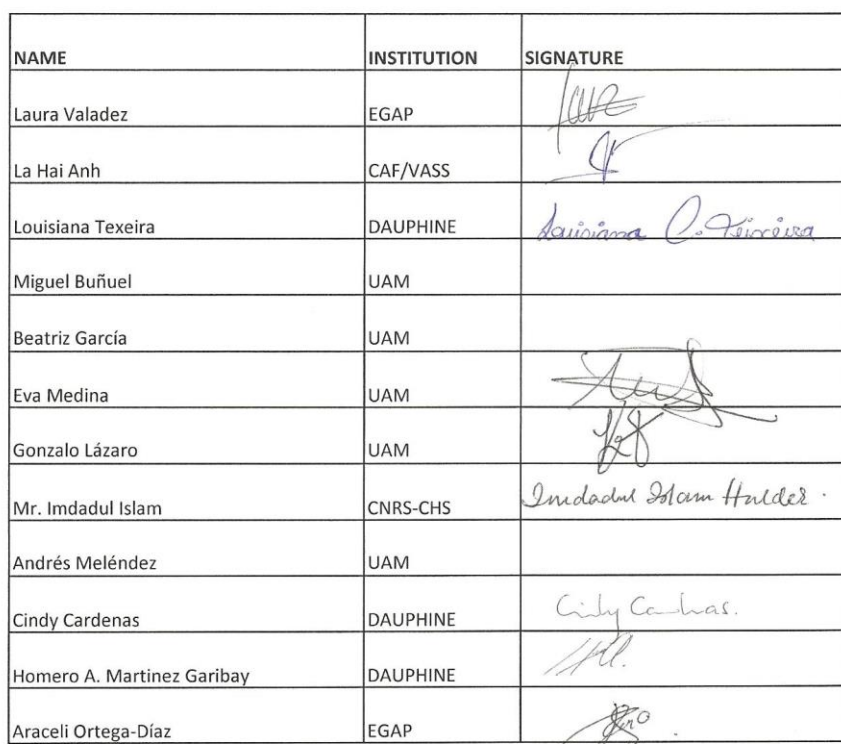 NAME INSTITUTION SIGNATURE
Laura Valadez EGAP
La Hai Anh CAF/VASS
Louisiana Texeira DAUPHINE Louisiana C. Teixeira
Miguel Buñuel UAM
Beatriz García UAM
Eva Medina UAM
Gonzalo Lázaro UAM
Mr. Imdadul Islam CNRS-CHS Imdadul Islam Halder.
Andrés Meléndez UAM
Cindy Cardenas DAUPHINE Cindy Cardenas.
Homero A. Martinez Garibay DAUPHINE
Araceli Ortega-Díaz EGAP